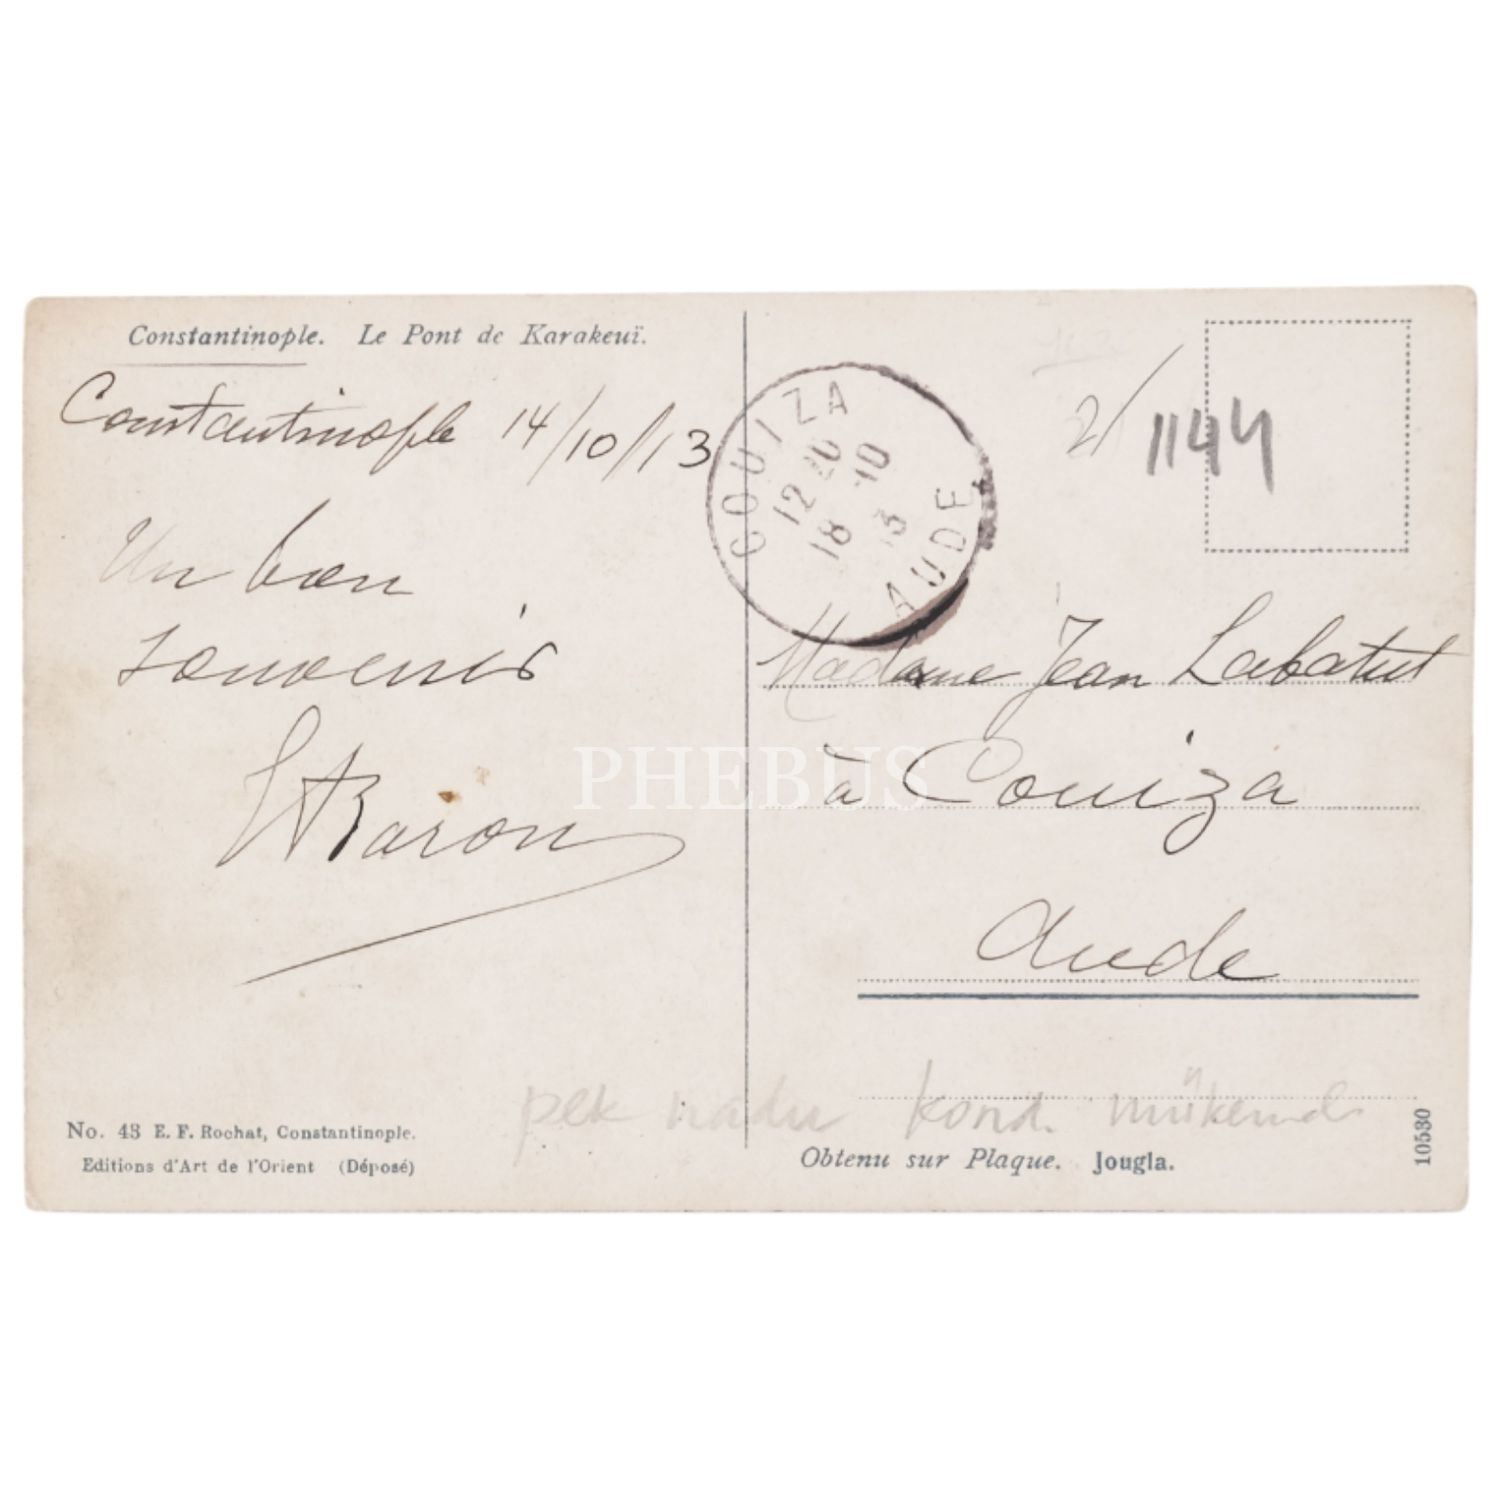 Constantinople. Le Pont de Karakeuï.
Constantinople 14/10/13
Un bon
souvenir
Baron
COUIZA
12 20
18 10
13
AUDE
2/
1144
Madame Jean Labatut
à Couiza
Aude
PHEBUS
pek nadir kond. mükemmel
No. 43 E. F. Rochat, Constantinople.
Editions d'Art de l'Orient (Déposé)
Obtenu sur Plaque. Jougla.
10530